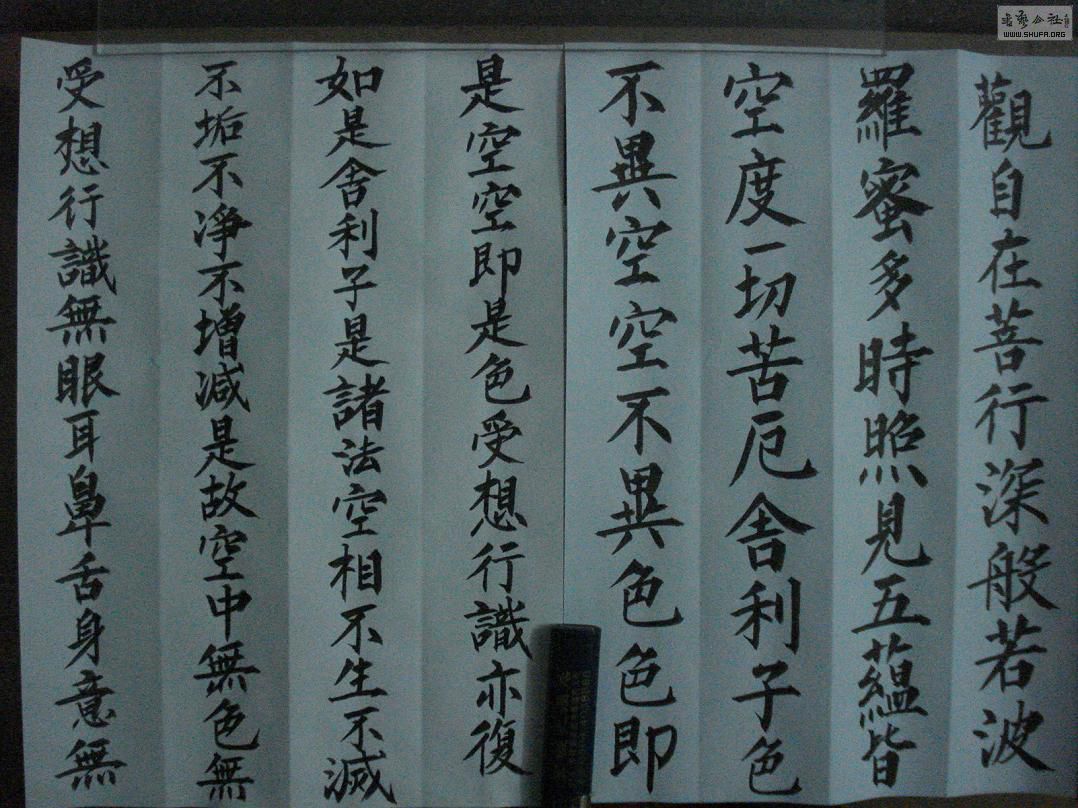 觀自在菩行深般若波
羅蜜多時照見五蘊皆
空度一切苦厄舍利子色
不異空空不異色色即
是空空即是色受想行識亦復
如是舍利子是諸法空相不生不滅
不垢不淨不增減是故空中無色無
受想行識無眼耳鼻舌身意無
書藝公社
WWW.SHUFA.ORG